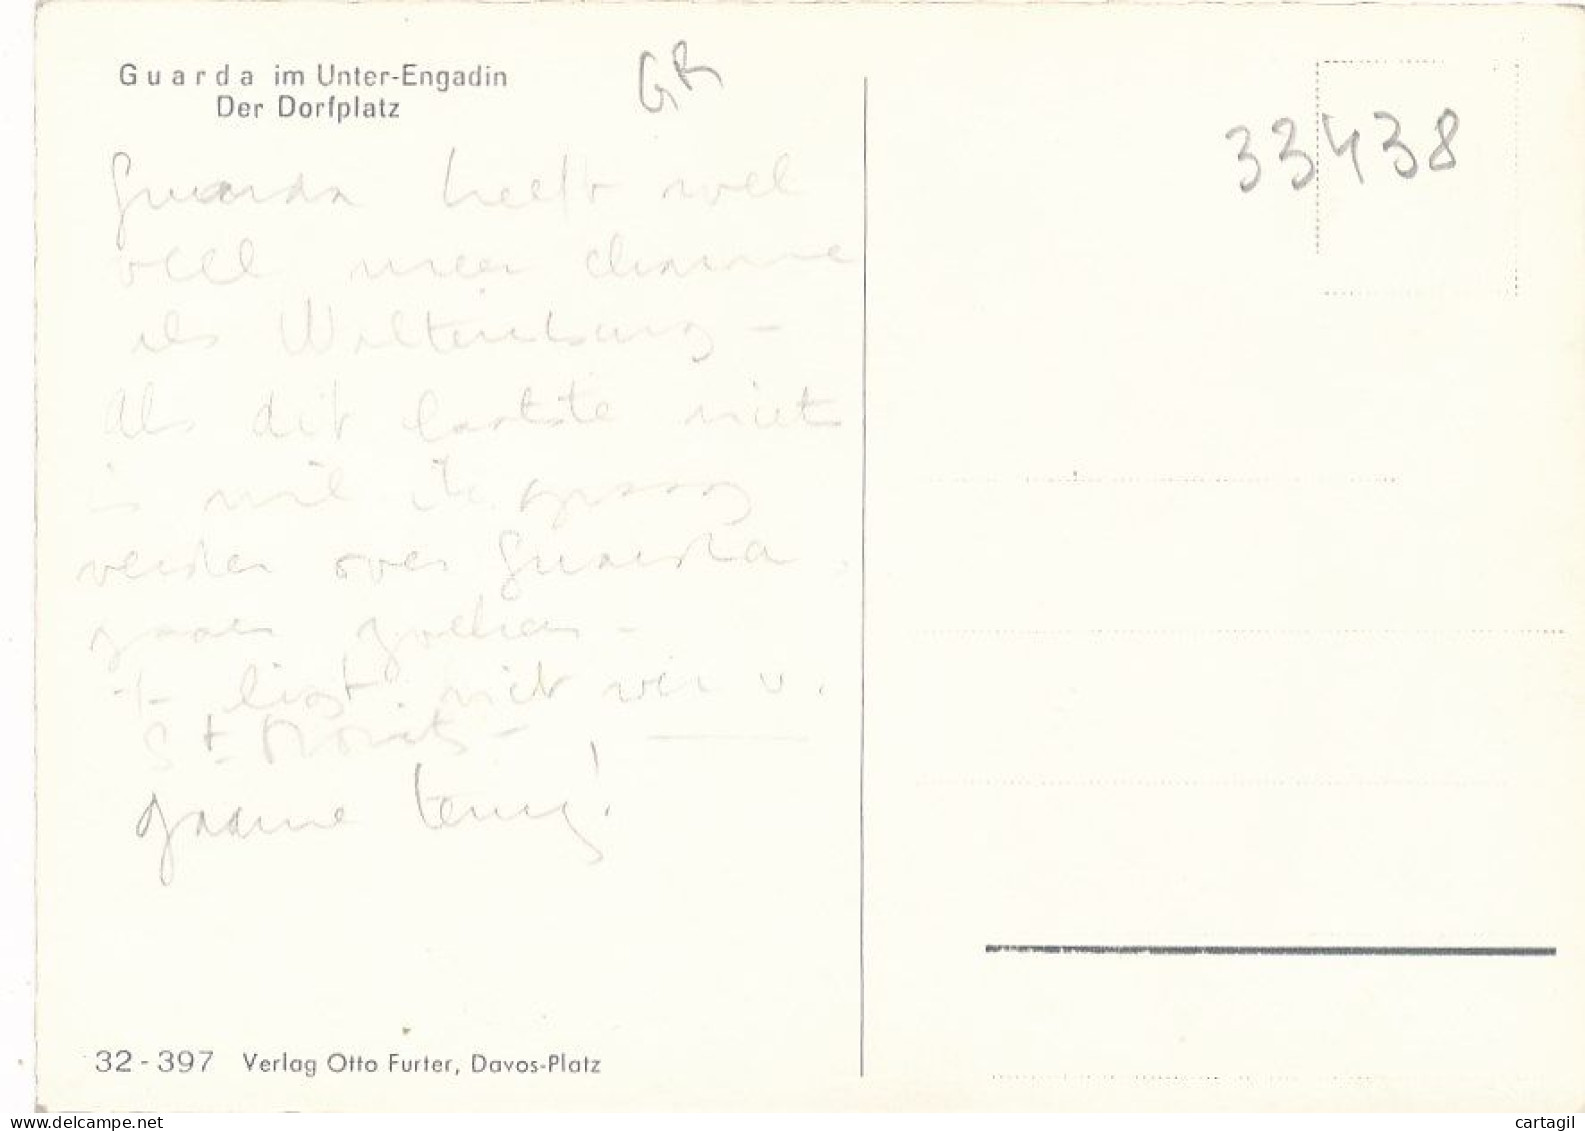 Guarda im Unter-Engadin
Der Dorfplatz
GR
33438
Guarda heeft wel
veel meer charme
als Waltensburg -
Als dit laatste niets
is wil ik graag
verder over Guarda
gaan
+ ligt niet ver v.
St Moritz -
32-397 Verlag Otto Furter, Davos-Platz
www.delcampe.net
cartagil